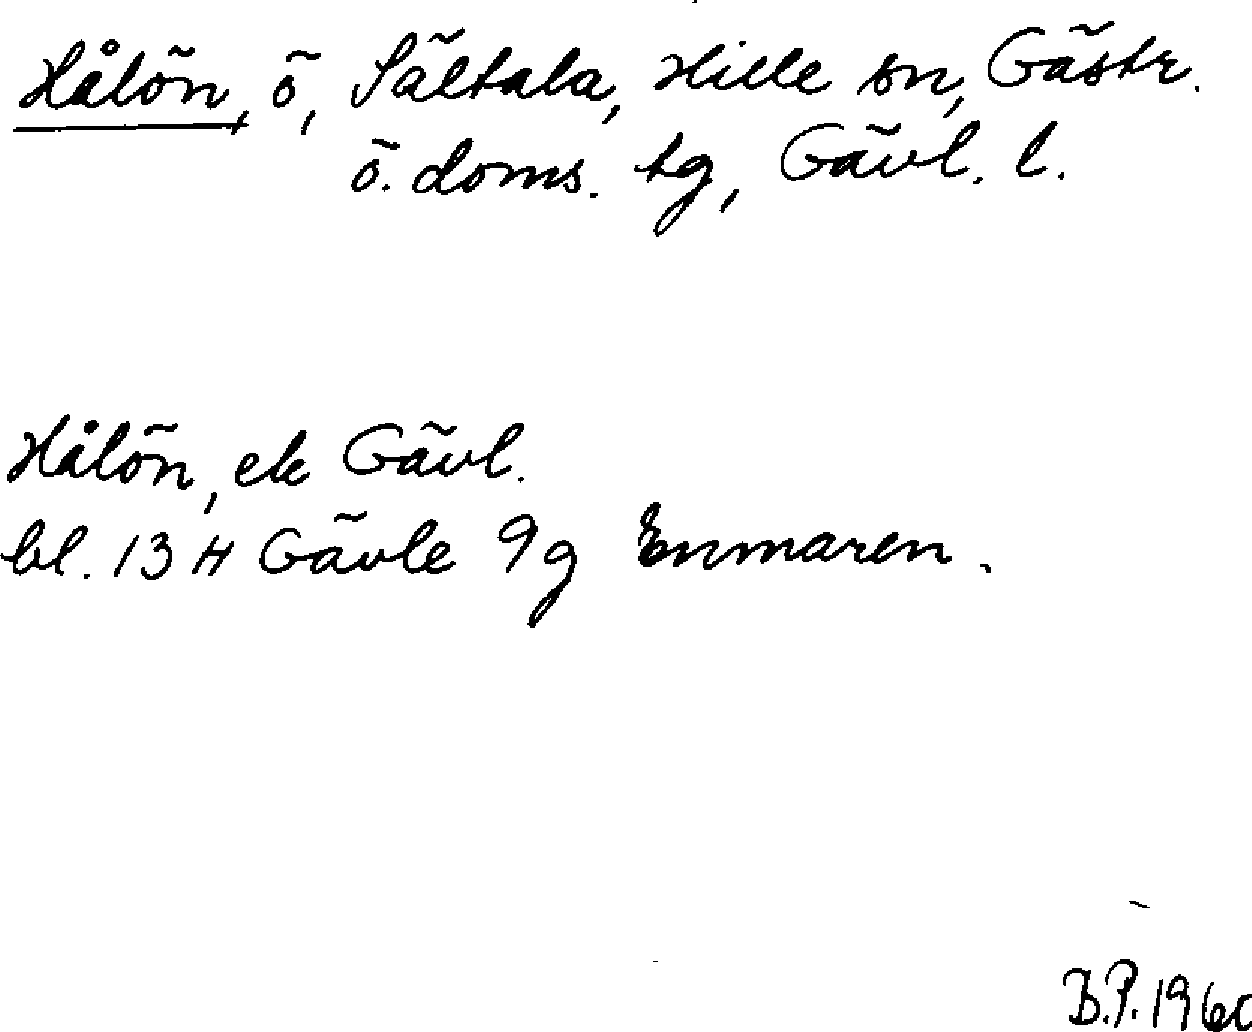 Hålön, ö, Sältala, Hille sn, Gästr.
ö. doms. tg, Gävl. l.
Hålön, ek Gävl.
bl. 13 H Gävle 9g Enmaren.
B.P. 1960